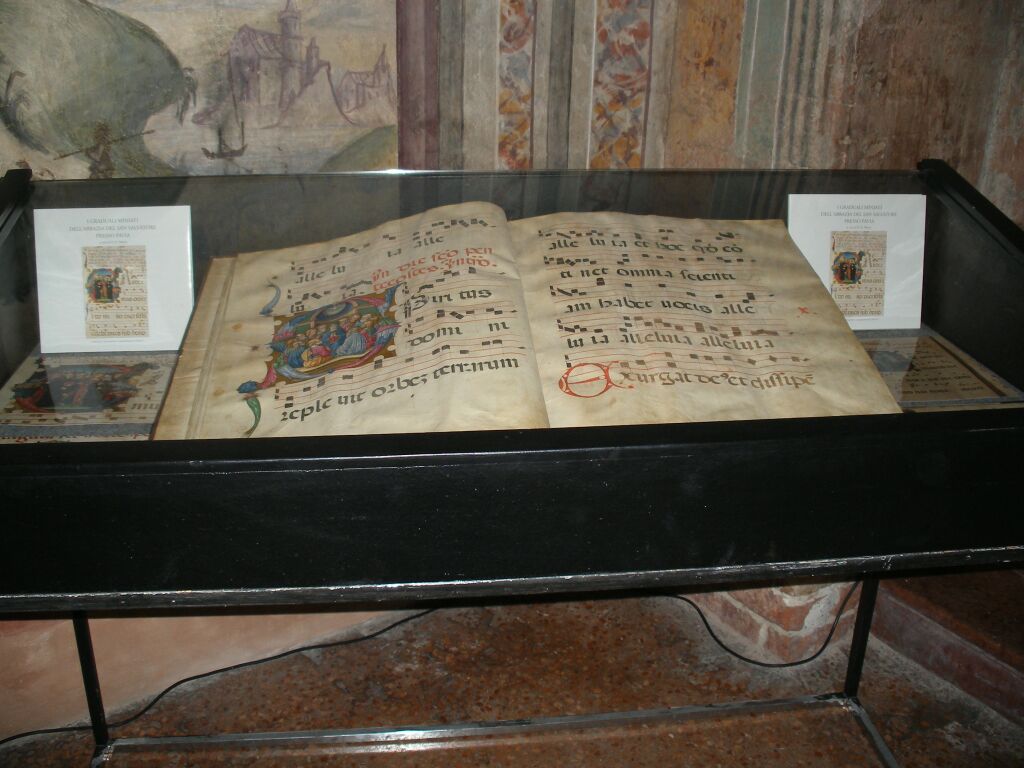 I GRADUALI MINIATI
DELL'ABBAZIA DEL SAN SALVATORE
PRESSO PAVIA
alle
alle lu
in die sco pen
Spiritus
domi ni
reple uit orbez terrarum
alle lu ia et hoc qđ cō
ti net omnia scienti
am habet uocis alle
lu ia alleluia alleluia
Exurgat de' et dissipē
I GRADUALI MINIATI
DELL'ABBAZIA DEL SAN SALVATORE
PRESSO PAVIA